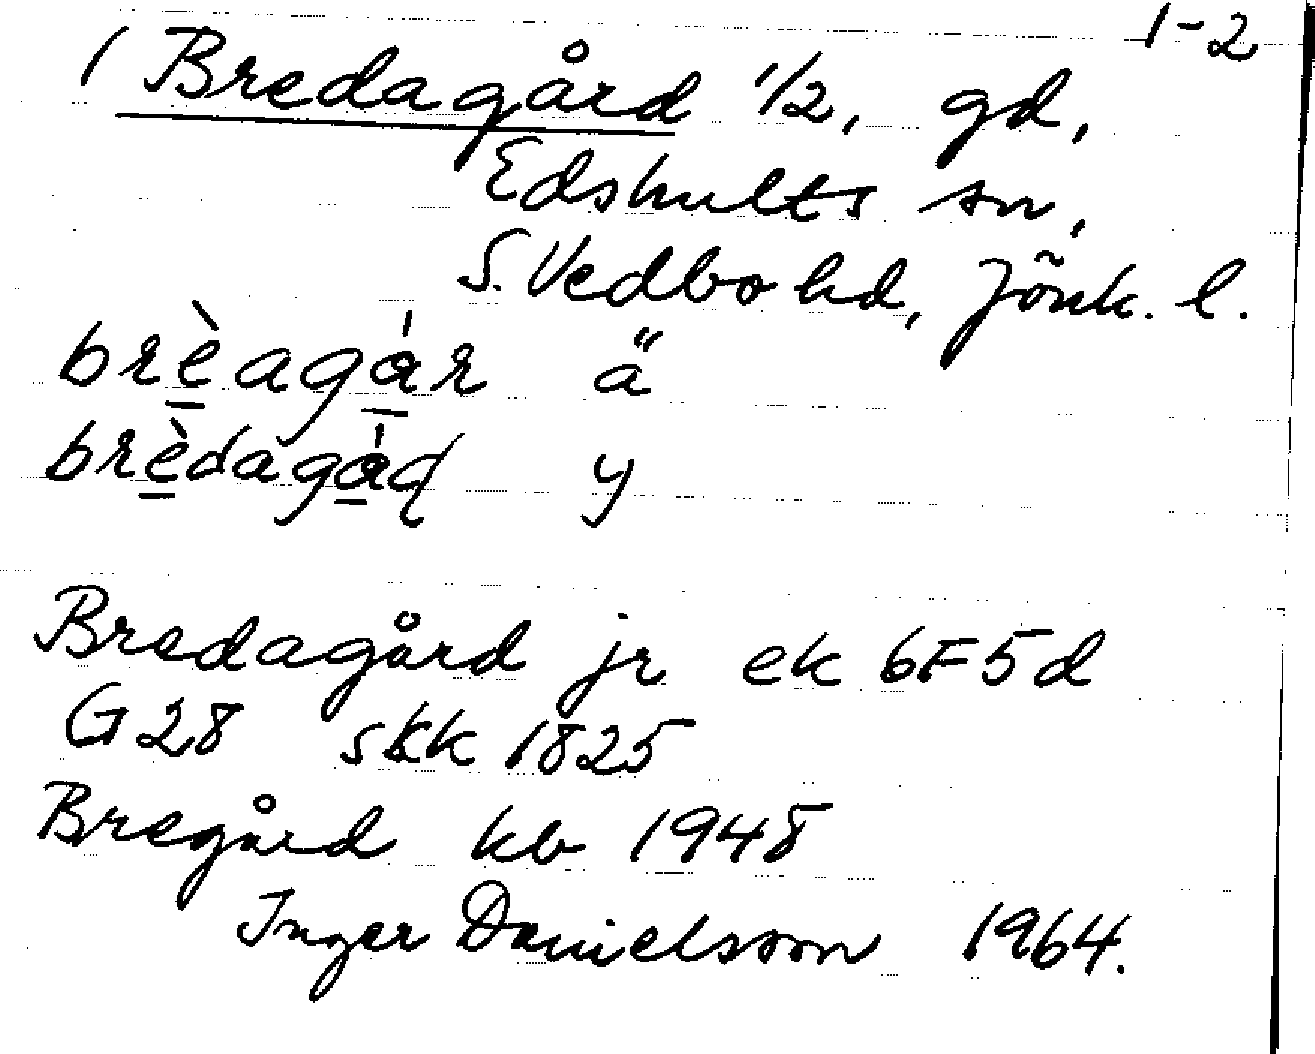 1-2
1 Bredagård 1/2, gd,
Edshults sn,
S. Vedbo hd, Jönk. l.
brè̲agá̲r ä
brè̲dagá̲ɖ y
Bredagård jr ek 6F5d
G28 skk 1825
Bregård kb 1948
Inger Danielsson 1964.